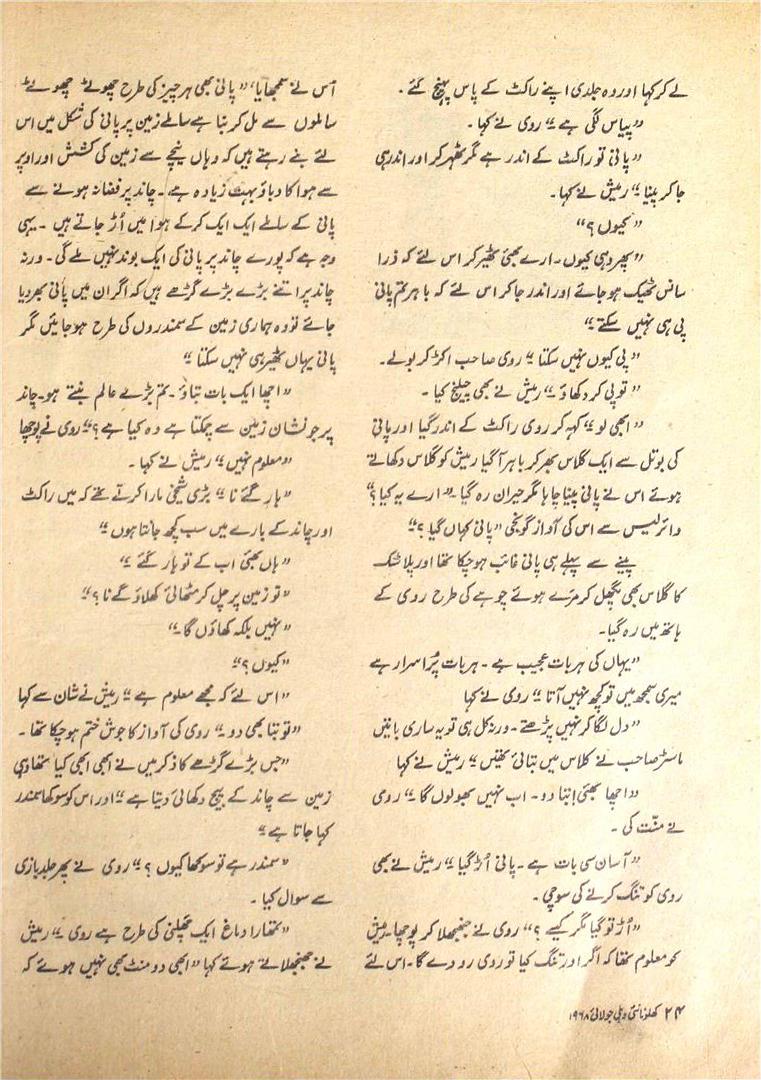 لے کر کہا اور وہ جلدی اپنے راکٹ کے پاس پہنچ گئے۔
”پیاس لگی ہے“ روی نے کہا۔
”پانی تو راکٹ کے اندر ہے مگر ٹھہر کر اور اندر ہی
جا کر پینا“ رمیش نے کہا۔
”کیوں؟“
”پھر وہی کیوں۔ ارے بھئی ٹھیر کر اس لئے کہ ذرا
سانس ٹھیک ہو جائے اور اندر جا کر اس لئے کہ باہر تم پانی
پی ہی نہیں سکتے“
”پی کیوں نہیں سکتا“ روی صاحب اکڑ کر بولے۔
”تو پی کر دکھاؤ“ رمیش نے بھی چیلنج کیا۔
”ابھی لو“ کہہ کر روی راکٹ کے اندر گیا اور پانی
کی بوتل سے ایک گلاس بھر کر باہر آ گیا رمیش کو گلاس دکھاتے
ہوئے اس نے پانی پینا چاہا مگر حیران رہ گیا۔ ”ارے یہ کیا؟“
وائرلیس سے اس کی آواز گونجی ”پانی کہاں گیا؟“
پینے سے پہلے ہی پانی غائب ہو چکا تھا اور پلاسٹک
کا گلاس بھی پگھل کر مرے ہوئے چوہے کی طرح روی کے
ہاتھ میں رہ گیا۔
”یہاں کی ہر بات عجیب ہے۔ ہر بات پُراسرار ہے
میری سمجھ میں تو کچھ نہیں آتا“ روی نے کہا
”دل لگا کر نہیں پڑھتے۔ ورنہ کل ہی تو یہ ساری باتیں
ماسٹر صاحب نے کلاس میں بتائی تھیں“ رمیش نے کہا
”اچھا بھئی بتا دو۔ اب نہیں بھولوں گا“ روی
نے منّت کی۔
”آسان سی بات ہے۔ پانی اُڑ گیا“ رمیش نے بھی
روی کو تنگ کرنے کی سوچی۔
”اُڑ تو گیا مگر کیسے؟“ روی نے جھنجھلا کر پوچھا۔ رمیش
کو معلوم تھا کہ اگر اور تنگ کیا تو روی رو دے گا۔ اس لئے
اس نے سمجھایا، ”پانی بھی ہر چیز کی طرح چھوٹے چھوٹے
سالموں سے مل کر بنا ہے سالمے زمین پر پانی کی شکل میں اس
لئے بنے رہتے ہیں کہ وہاں نیچے سے زمین کی کشش اور اوپر
سے ہوا کا دباؤ بہت زیادہ ہے۔ چاند پر فضا نہ ہونے سے
پانی کے سالمے ایک ایک کر کے ہوا میں اُڑ جاتے ہیں۔ یہی
وجہ ہے کہ پورے چاند پر پانی کی ایک بوند نہیں ملے گی۔ ورنہ
چاند پر اتنے بڑے بڑے گڑھے ہیں کہ اگر ان میں پانی بھر دیا
جائے تو وہ ہماری زمین کے سمندروں کی طرح ہو جائیں مگر
پانی یہاں ٹھیر ہی نہیں سکتا“
”اچھا ایک بات بتاؤ۔ تم بڑے عالم بنتے ہو۔ چاند
پر جو نشان زمین سے چمکتا ہے وہ کیا ہے؟“ روی نے پوچھا
”معلوم نہیں“ رمیش نے کہا۔
”ہار گئے نا“ بڑی شیخی مارا کرتے تھے کہ میں راکٹ
اور چاند کے بارے میں سب کچھ جانتا ہوں“
”ہاں بھئی اب کے تو ہار گئے“
”تو زمین پر چل کر مٹھائی کھلاؤ گے نا؟“
”نہیں بلکہ کھاؤں گا“
”کیوں؟“
”اس لئے کہ مجھے معلوم ہے“ رمیش نے شان سے کہا
”تو بتا بھی دو“ روی کی آواز کا جوش ختم ہو چکا تھا۔
”جس بڑے گڑھے کا ذکر میں نے ابھی ابھی کیا تھا وہی
زمین سے چاند کے بیچ دکھائی دیتا ہے“ اور اس کو سوکھا سمندر
کہا جاتا ہے“
”سمندر ہے تو سوکھا کیوں؟“ روی نے پھر جلد بازی
سے سوال کیا۔
”تمھارا دماغ ایک چھلنی کی طرح ہے روی“ رمیش
نے جھنجھلاتے ہوئے کہا ”ابھی دو منٹ بھی نہیں ہوئے کہ
۲۴ کھلونا نئی دہلی جولائی ۱۹۶۸